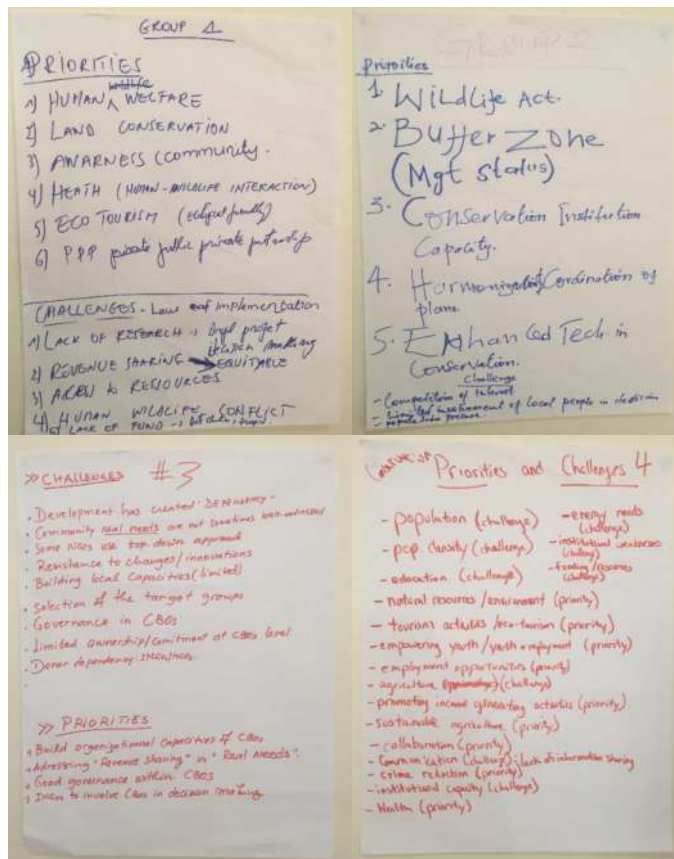 GROUP 1
PRIORITIES
wildlife
1) HUMAN WELFARE
2) LAND CONSERVATION
3) AWARNESS (community.
4) HEATH (HUMAN-WILDLIFE INTERACTION)
5) ECO TOURISM
6) PPP private public private partnership
CHALLENGES - Law implementation
1) LACK OF RESEARCH
2) REVENUE SHARING → EQUITABLE
3) TO RESSOURCES
4) HUMAN WILDLIFE CONFLICT
LACK OF FUND
GROUP 2
Priorities
1. Wildlife Act.
2. Buffer Zone
(Mgt status)
3. Conservation Institution
Capacity.
4. Harmonization/Cordination of
plans
5. Enhanced Tech in
Conservation.
Challenge
- Competition of interest
- Limited involvement of local people in decision
- population pressure
>> CHALLENGES #3
. Development has created "DEPENDENCY"
. Community real needs are not sometimes been addressed
. Some NGOs use top-down approach
. Resistance to changes/innovations
. Building local capacities (limited)
. Selection of the target groups
. Governance in CBOs
. Limited ownership/comitment at CBOs level
. Donor dependency
>> PRIORITIES
. Build organizational capacities of CBOs
. Adressing "Revenue sharing" vs "Real Needs".
. Good governance within CBOs
. to involve CBOs in decision making
Priorities and Challenges 4
- population (challenge)
- pop. density (challenge)
- education (challenge)
- energy needs
(challenge)
- institutional weaknesses
(challenge)
- funding/resources
(challenge)
- natural resources/environment (priority)
- tourism activities/eco-tourism (priority)
- empowering youth/youth employment (priority)
- employment opportunities (priority)
- agriculture (challenge)
- promoting income generating activities (priority)
- sustainable agriculture (priority)
- collaboration (priority)
- Communication (challenge): lack of information sharing
- crime reduction (priority)
- institutional capacity (challenge)
- Health (priority)